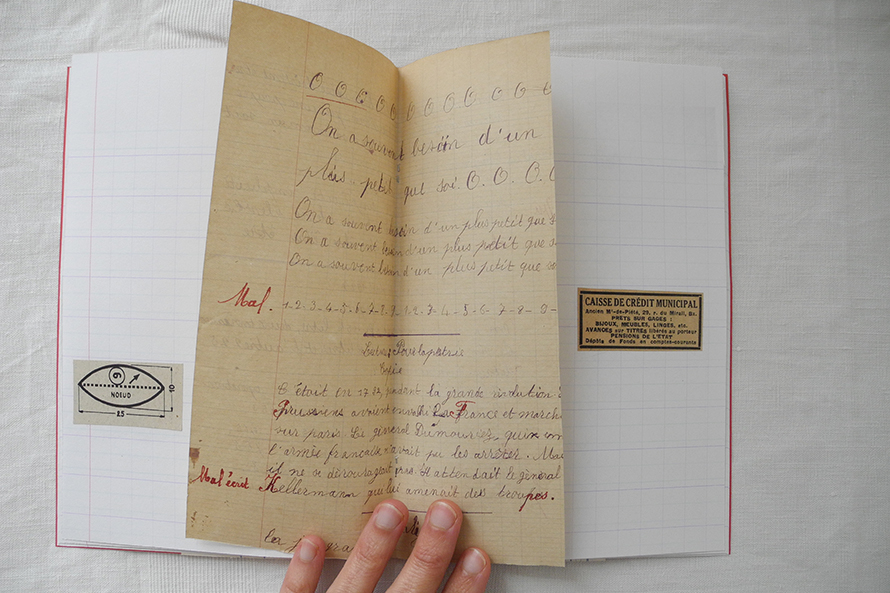 O. O O O O O O O O O O
On a souvent besoin d'un
plus petit que soi. O. O. O. O
On a souvent besoin d'un plus petit que s
On a souvent besoin d'un plus petit que s
On a souvent besoin d'un plus petit que so
Mal.
1-2-3-4-5-6-7-8-9-1-2-3-4-5-6-7-8-9-
Pour la patrie
C'était en 17 pendant la grande révolution
Prussiens avaient envahi La France et march
sur paris. Le général Dumouriez qui
l'armée française n'avait pu les arrêter. Mai
il ne se décourageait pas. Il attendait le général
Mal écrit
Kellermann qui lui amenait des troupes.
La
6
NOEUD
10
25
CAISSE DE CRÉDIT MUNICIPAL
Ancien Mt-de-Piété, 29, r. du Mirail, Bx.
PRÊTS SUR GAGES :
BIJOUX, MEUBLES, LINGES, etc.
AVANCES sur TITRES libérés au porteur
PENSIONS DE L'ETAT
Dépôts de Fonds en comptes-courants